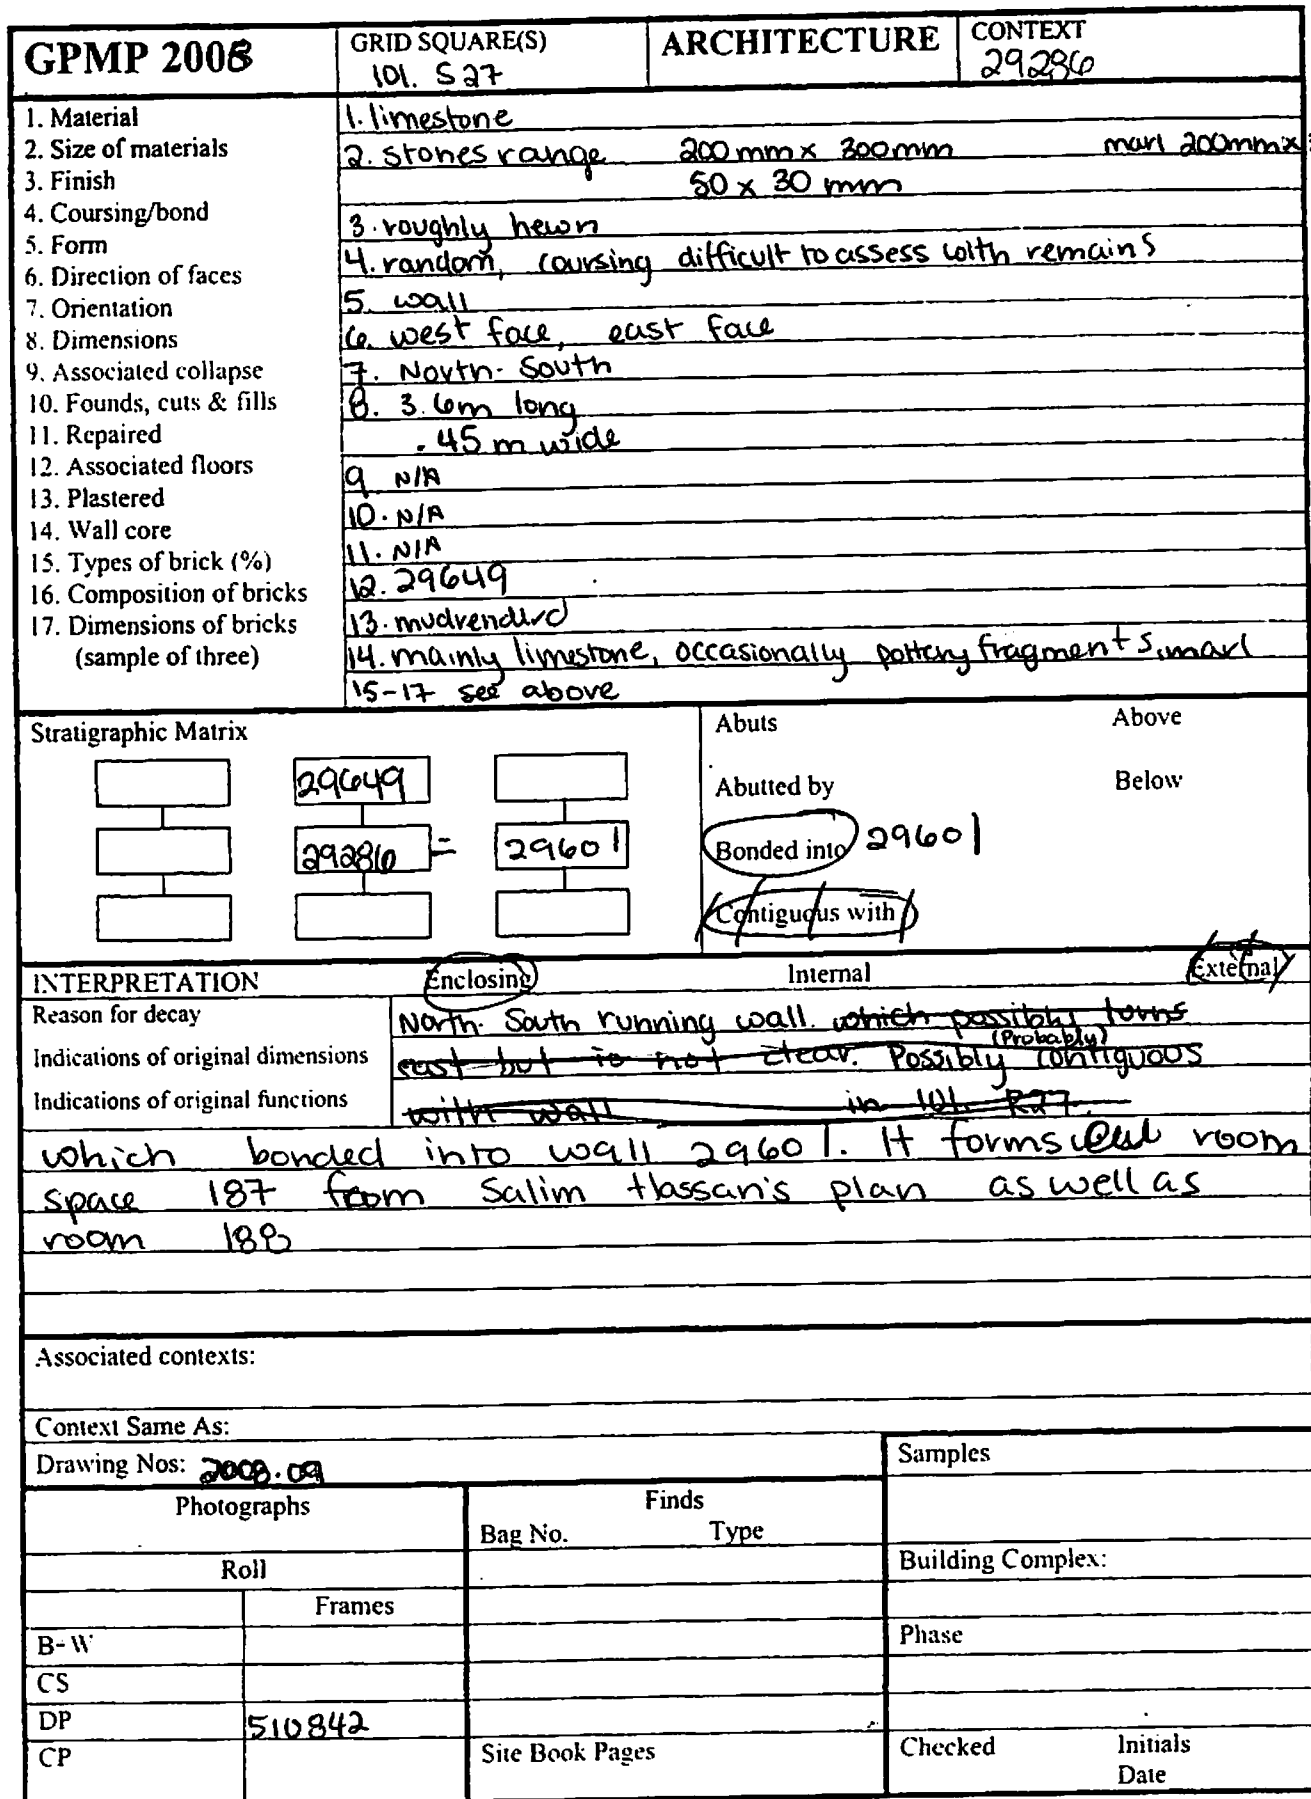 GPMP 2008
GRID SQUARE(S)
101. S27
ARCHITECTURE
CONTEXT
29286
1. Material
2. Size of materials
3. Finish
4. Coursing/bond
5. Form
6. Direction of faces
7. Orientation
8. Dimensions
9. Associated collapse
10. Founds, cuts & fills
11. Repaired
12. Associated floors
13. Plastered
14. Wall core
15. Types of brick (%)
16. Composition of bricks
17. Dimensions of bricks
(sample of three)
1. limestone
2. stones range 200mm x 300mm marl 200mmx
50 x 30 mm
3. roughly hewn
4. random, coursing difficult to assess with remains
5. wall
6. west face, east face
7. North-South
8. 3.6m long
.45 m wide
9. N/A
10. N/A
11. N/A
12. 29649
13. mudrenderd
14. mainly limestone, occasionally pottery fragments, marl
15-17 see above
Stratigraphic Matrix
29649
29286 = 29601
Abuts Above
Abutted by Below
Bonded into 29601
Contiguous with
INTERPRETATION Enclosing Internal External
Reason for decay
Indications of original dimensions
Indications of original functions
North-South running wall. which possibly turns
(Probably)
east but is not clear. Possibly contiguous
with wall in 101. R27.
which bonded into wall 29601. It forms room
space 187 from Salim Hassan's plan as well as
room 188
Associated contexts:
Context Same As:
Drawing Nos: 2008.09
Photographs
Roll
Frames
B-W
CS
DP 510842
CP
Finds
Bag No. Type
Site Book Pages
Samples
Building Complex:
Phase
Checked Initials
Date